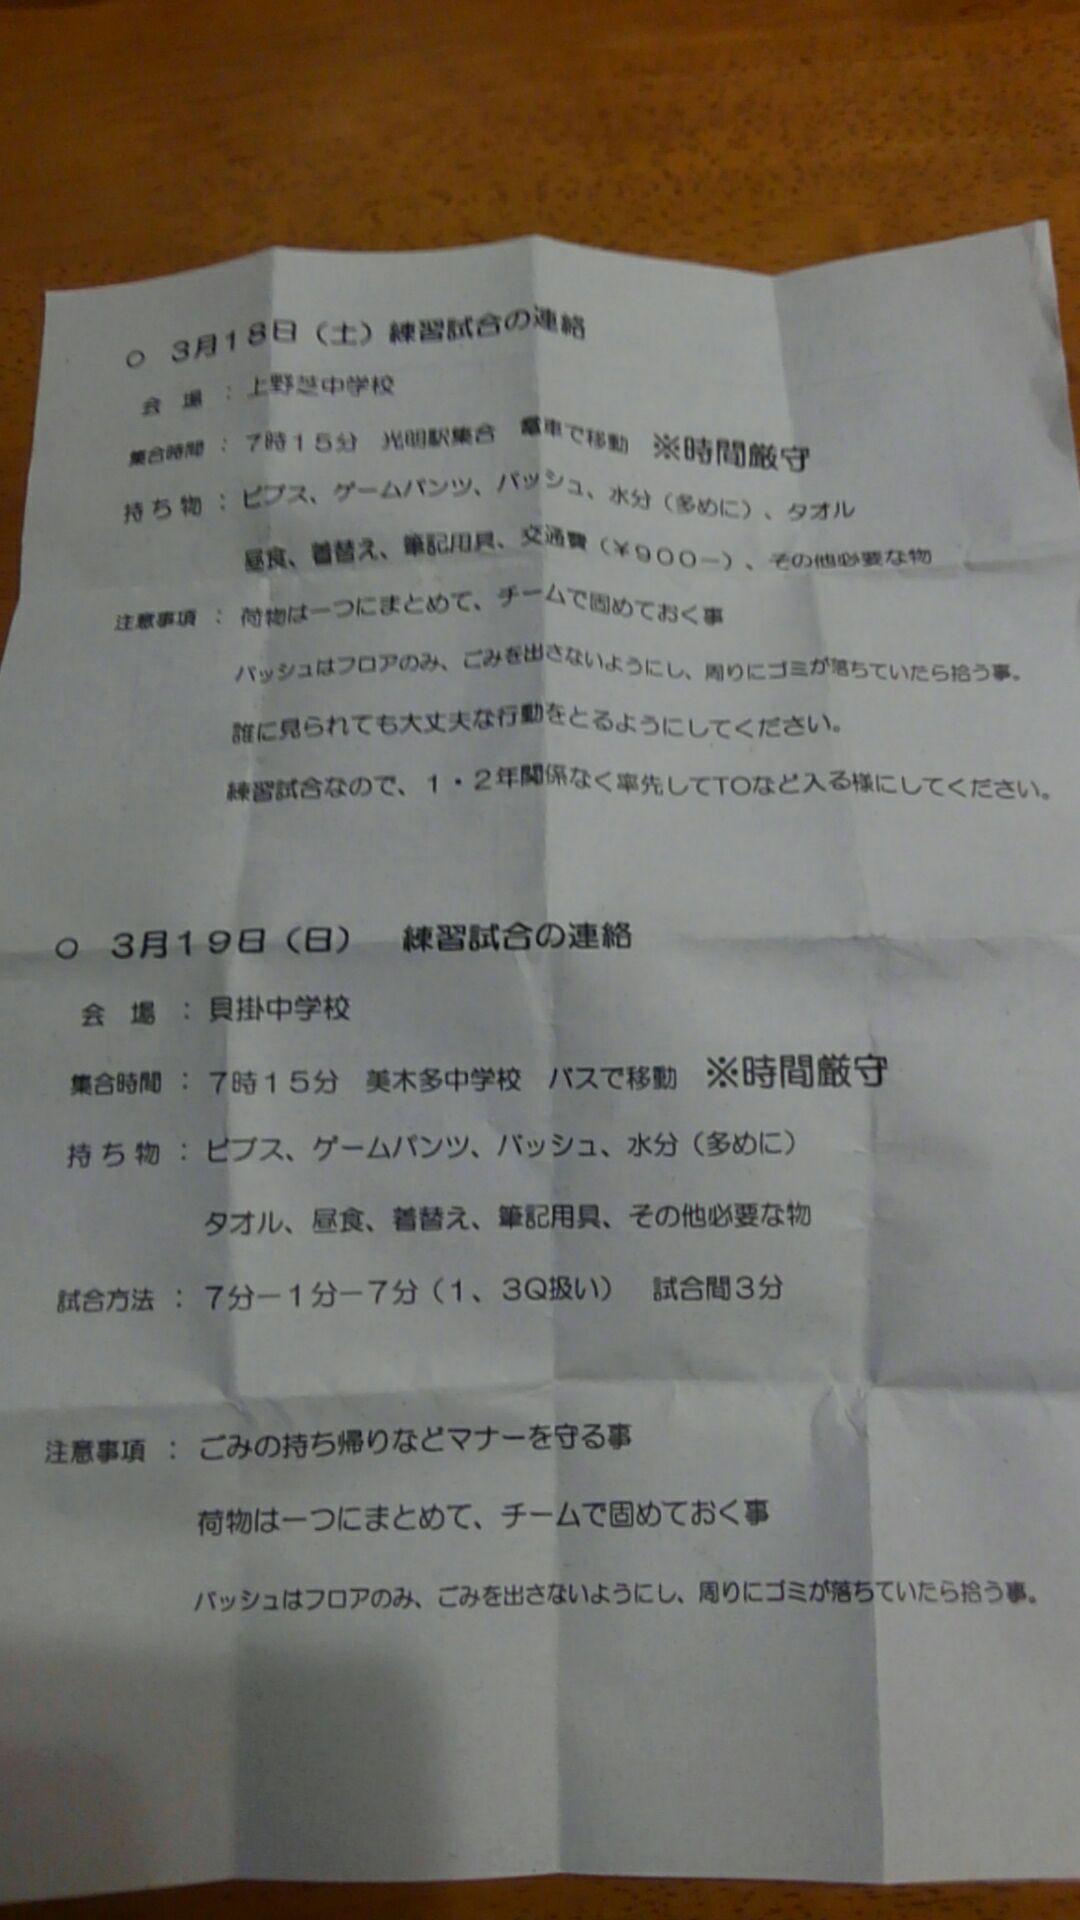 ○ 3月18日（土）練習試合の連絡
会 場 ： 上野芝中学校
集合時間 ： 7時15分 光明駅集合 電車で移動 ※時間厳守
持ち物 ： ビブス、ゲームパンツ、バッシュ、水分（多めに）、タオル
昼食、着替え、筆記用具、交通費（￥900－）、その他必要な物
注意事項 ： 荷物は一つにまとめて、チームで固めておく事
バッシュはフロアのみ、ごみを出さないようにし、周りにゴミが落ちていたら拾う事。
誰に見られても大丈夫な行動をとるようにしてください。
練習試合なので、1・2年関係なく率先してTOなど入る様にしてください。
○ 3月19日（日） 練習試合の連絡
会 場 ： 貝掛中学校
集合時間 ： 7時15分 美木多中学校 バスで移動 ※時間厳守
持ち物 ： ビブス、ゲームパンツ、バッシュ、水分（多めに）
タオル、昼食、着替え、筆記用具、その他必要な物
試合方法 ： 7分－1分－7分（1、3Q扱い） 試合間3分
注意事項 ： ごみの持ち帰りなどマナーを守る事
荷物は一つにまとめて、チームで固めておく事
バッシュはフロアのみ、ごみを出さないようにし、周りにゴミが落ちていたら拾う事。